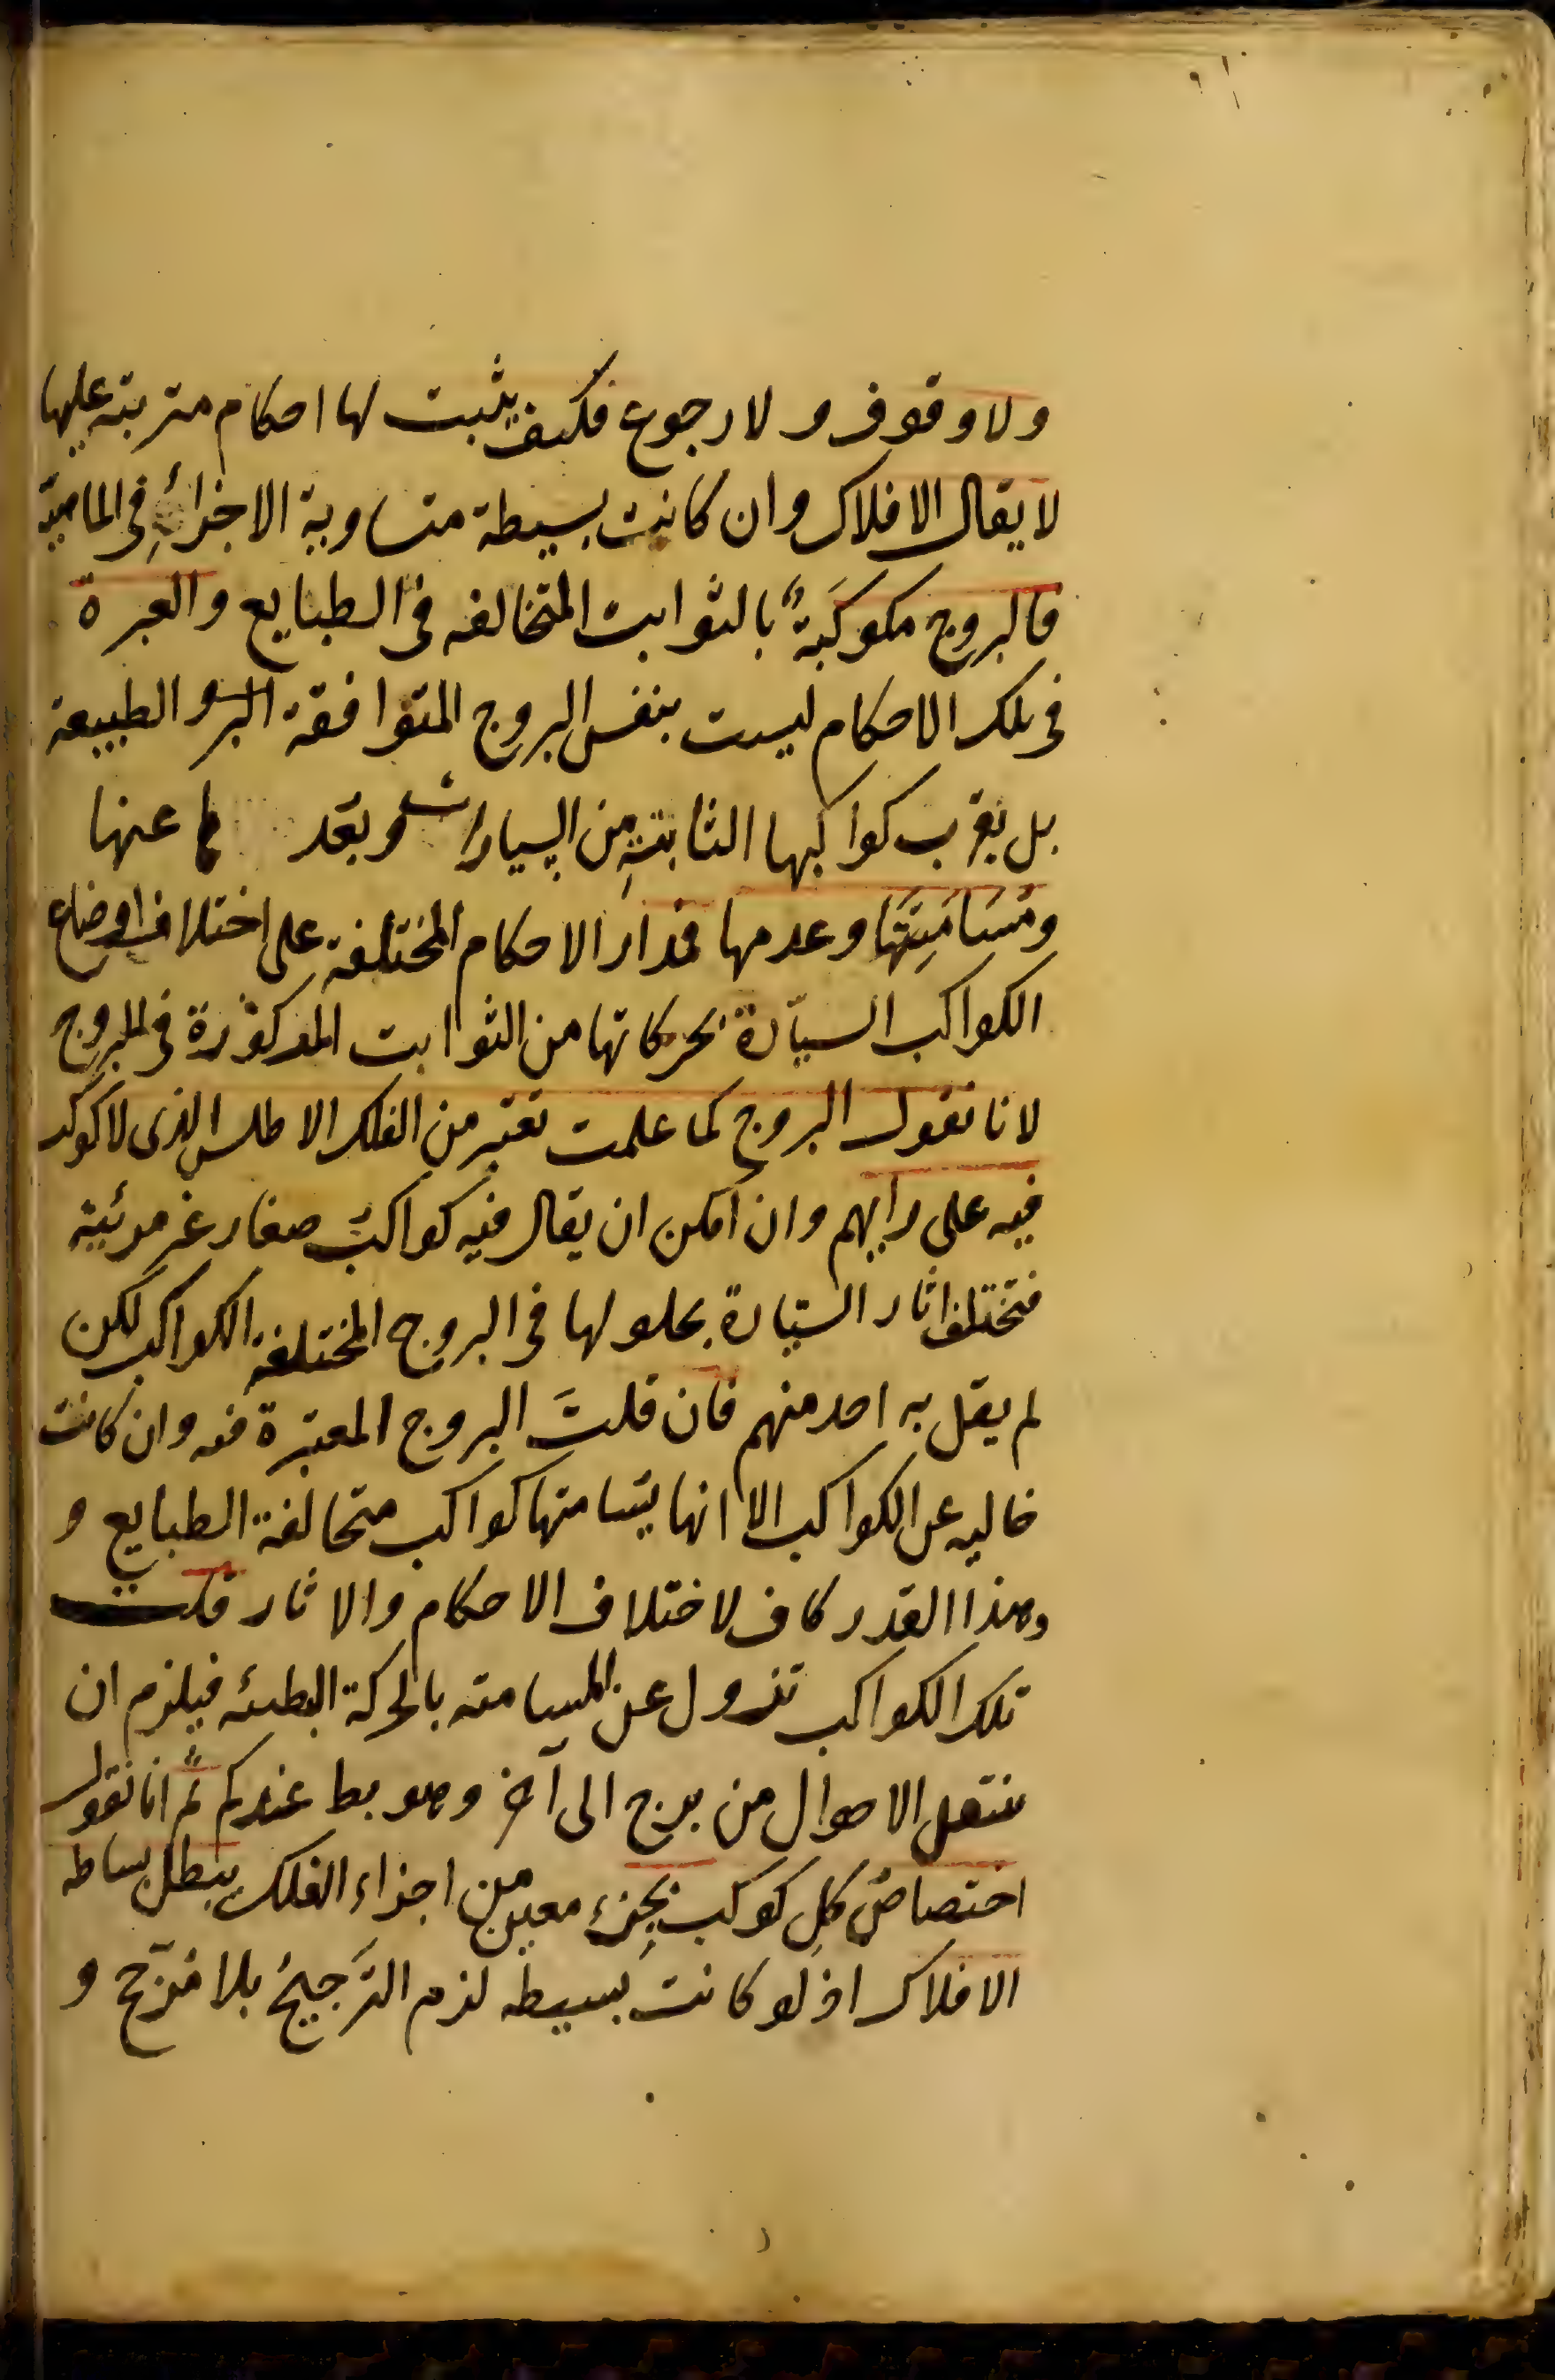 ولا وقوف ولا رجوع فكيف يثبت لها احكام مترتبة عليها
لا يقال الافلاك وان كانت بسيطة متساوية الاجزاء في الماهية
فالبروج مكوكبة بالثوابت المتخالفه في الطبايع والعبرة
في تلك الاحكام ليست بنفس البروج المتوافقة الطبيعة
بل بقرب كواكبها الثابتة من السيارات وبعدها عنها
ومسامتتها وعدمها فمدار الاحكام المختلفة على اختلاف اوضاع
الكواكب السيارة بحركاتها من الثوابت المركوزة في البروج
لانا نقول البروج كما علمت تعتبر من الفلك الاطلس الذى لا كوكب
فيه على رايهم وان امكن ان يقال فيه كواكب صغار غير مرئية
فتختلف اثار السيارة بحلولها في البروج المختلفة الكواكب لكن
لم يقل به احد منهم فان قلت البروج المعتبرة فيه وان كانت
خاليه عن الكواكب الا انها يسامتها كواكب متخالفة الطبايع و
وهذا القدر كاف لاختلاف الاحكام والاثار قلت
تلك الكواكب تزول عن المسامته بالحركة البطيئه فيلزم ان
ينتقل الاحوال من برج الى آخر وهو بط عندكم ثم انا نقول
اختصاص كل كوكب بجزء معين من اجزاء الفلك يبطل بساطه
الافلاك اذ لو كانت بسيطه لزم الترجيح بلا مرجح و